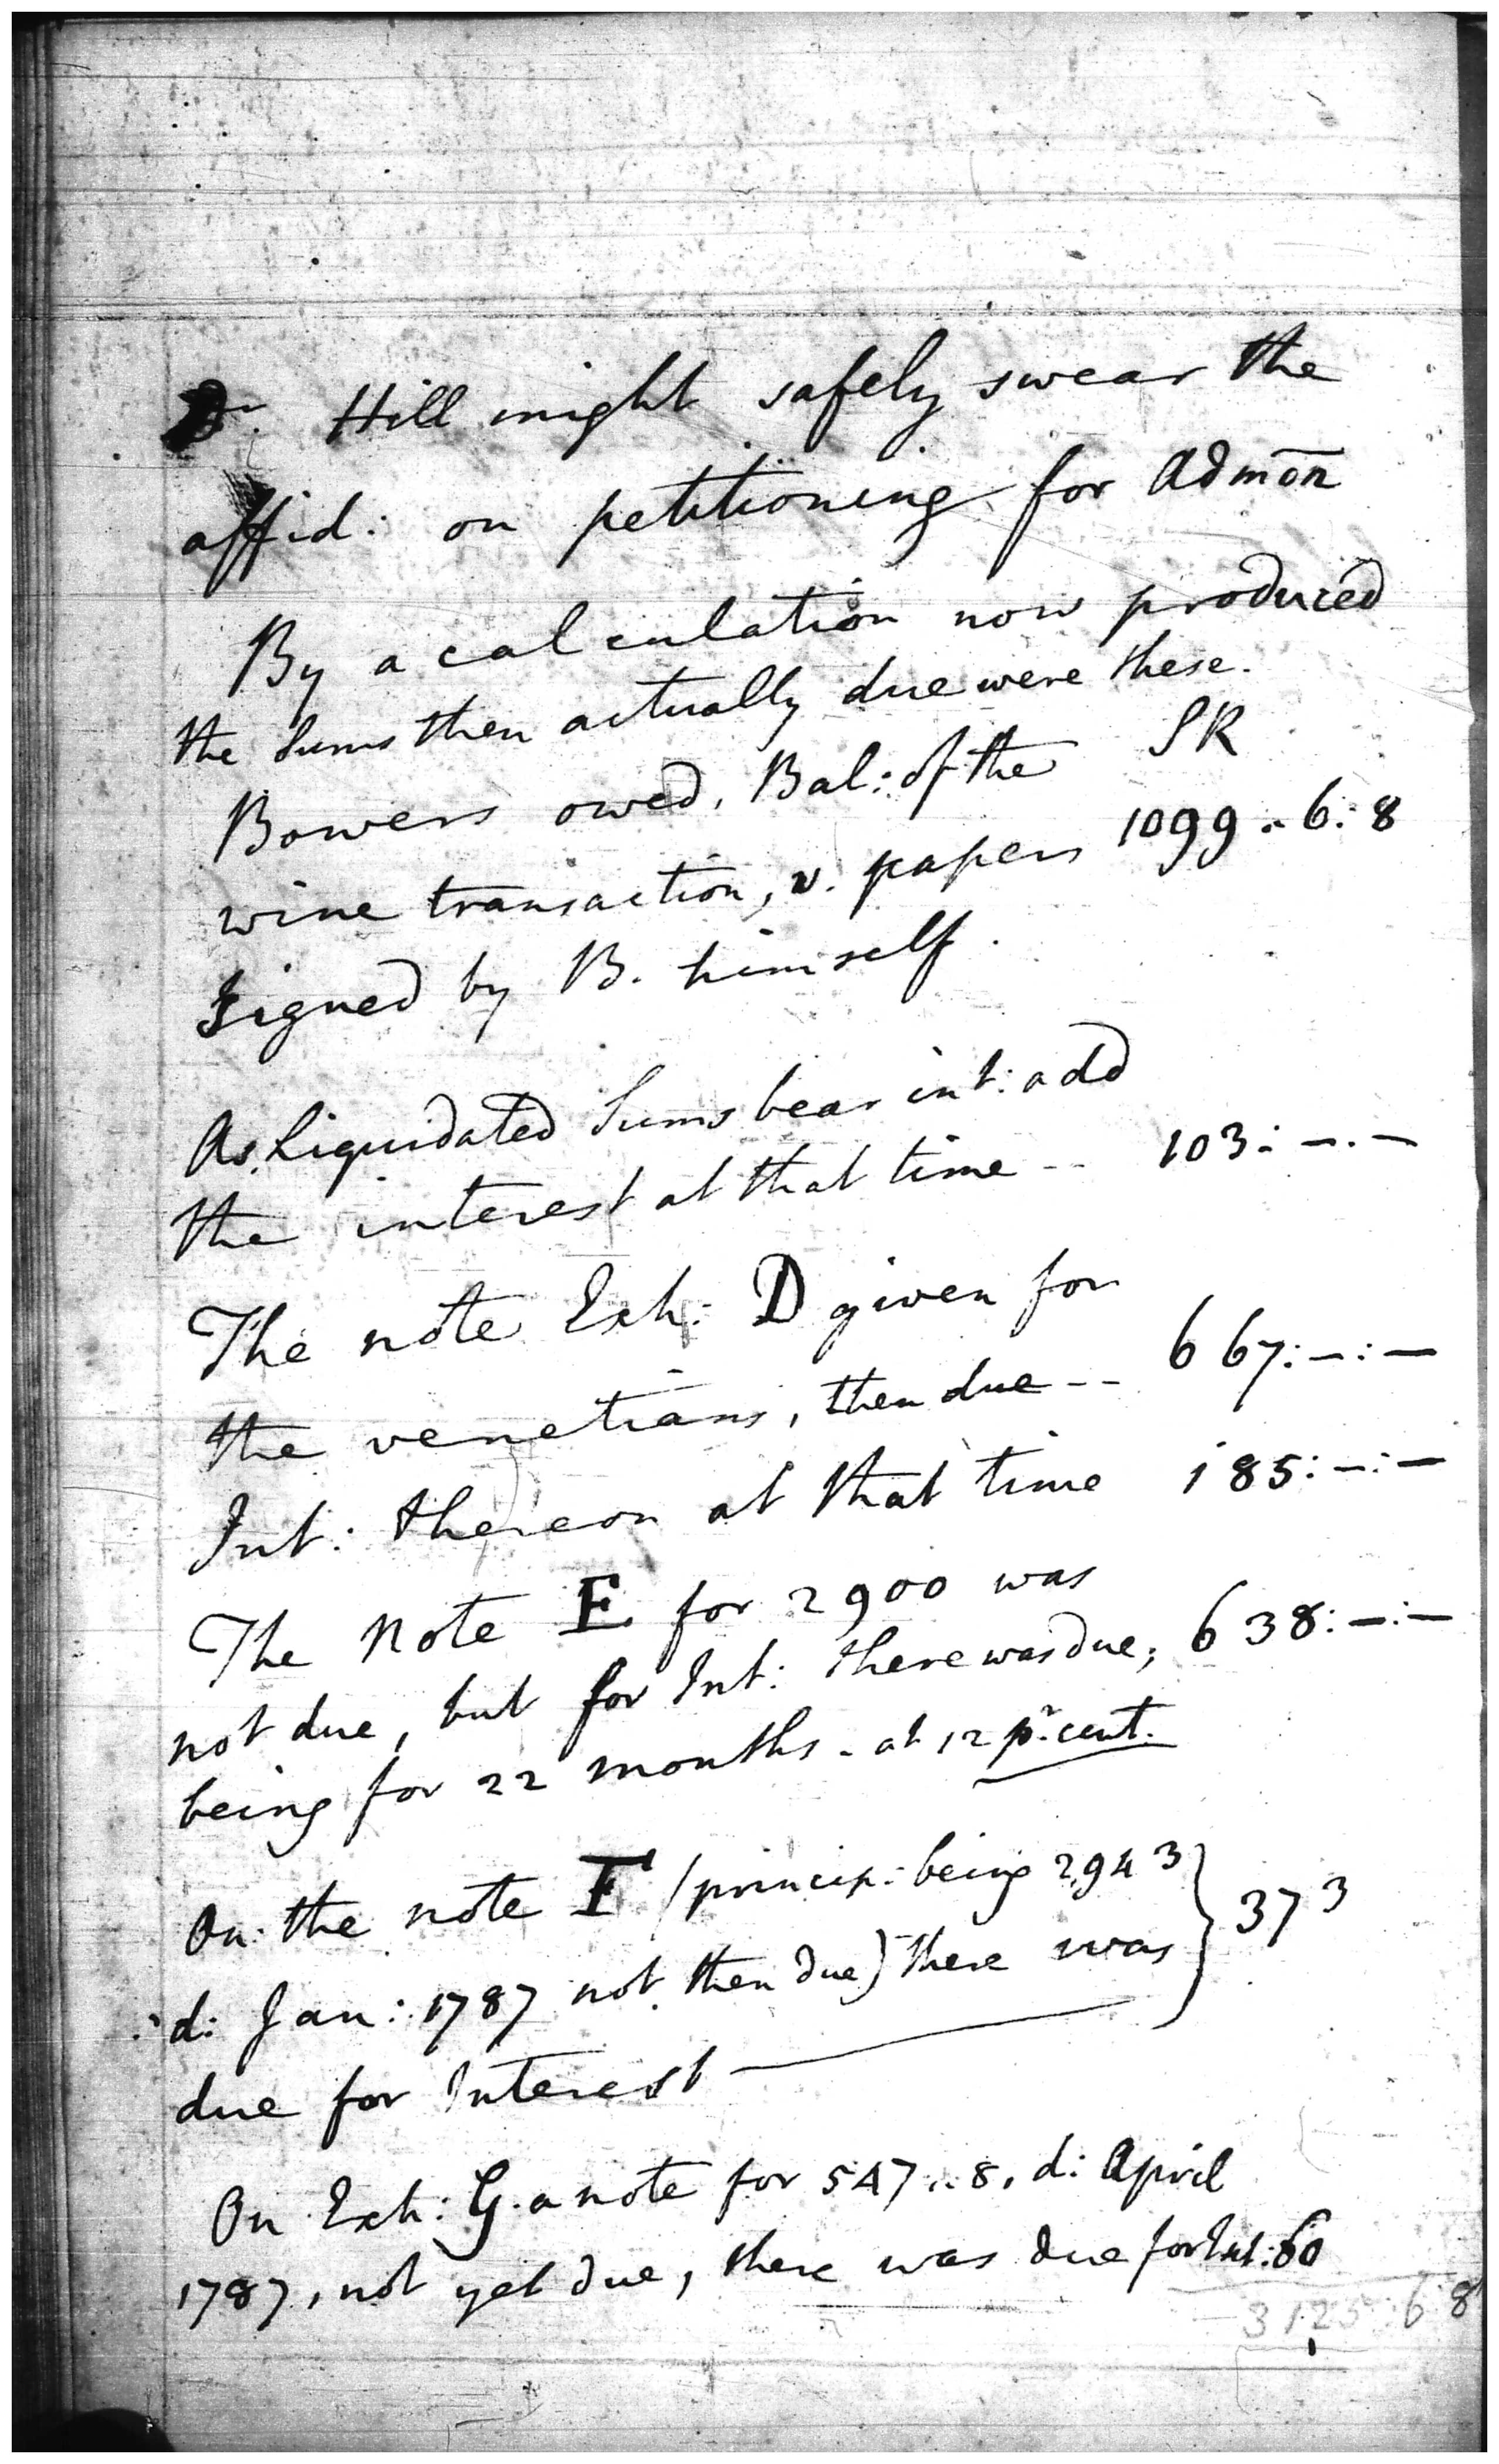 Dr. Hill might safely swear the
affid: on petitioning for Admõn
By a calculation now produced
the Sums then actually due were these.
SR
Bowers owed, Bal: of the
wine transaction, v. papers 1099 .. 6: 8
signed by B. himself.
As liquidated Sums bear int: add
the interest at that time -- 103: -.-
The note Exh: D given for
the venetians, then due -- 667:-:-
Int: thereon at that time 185:-:-
The Note E for 2900 was
not due, but for Int: there was due; 638:-:-
being for 22 months - at 12 pr. cent.
On the note F (princip: being 2943
d: Jan: 1787 not then due) there was } 373
due for Interest
On Exh: G. a note for 547..8, d: April
1787, not yet due, there was due for Int: 60
3125:6:8